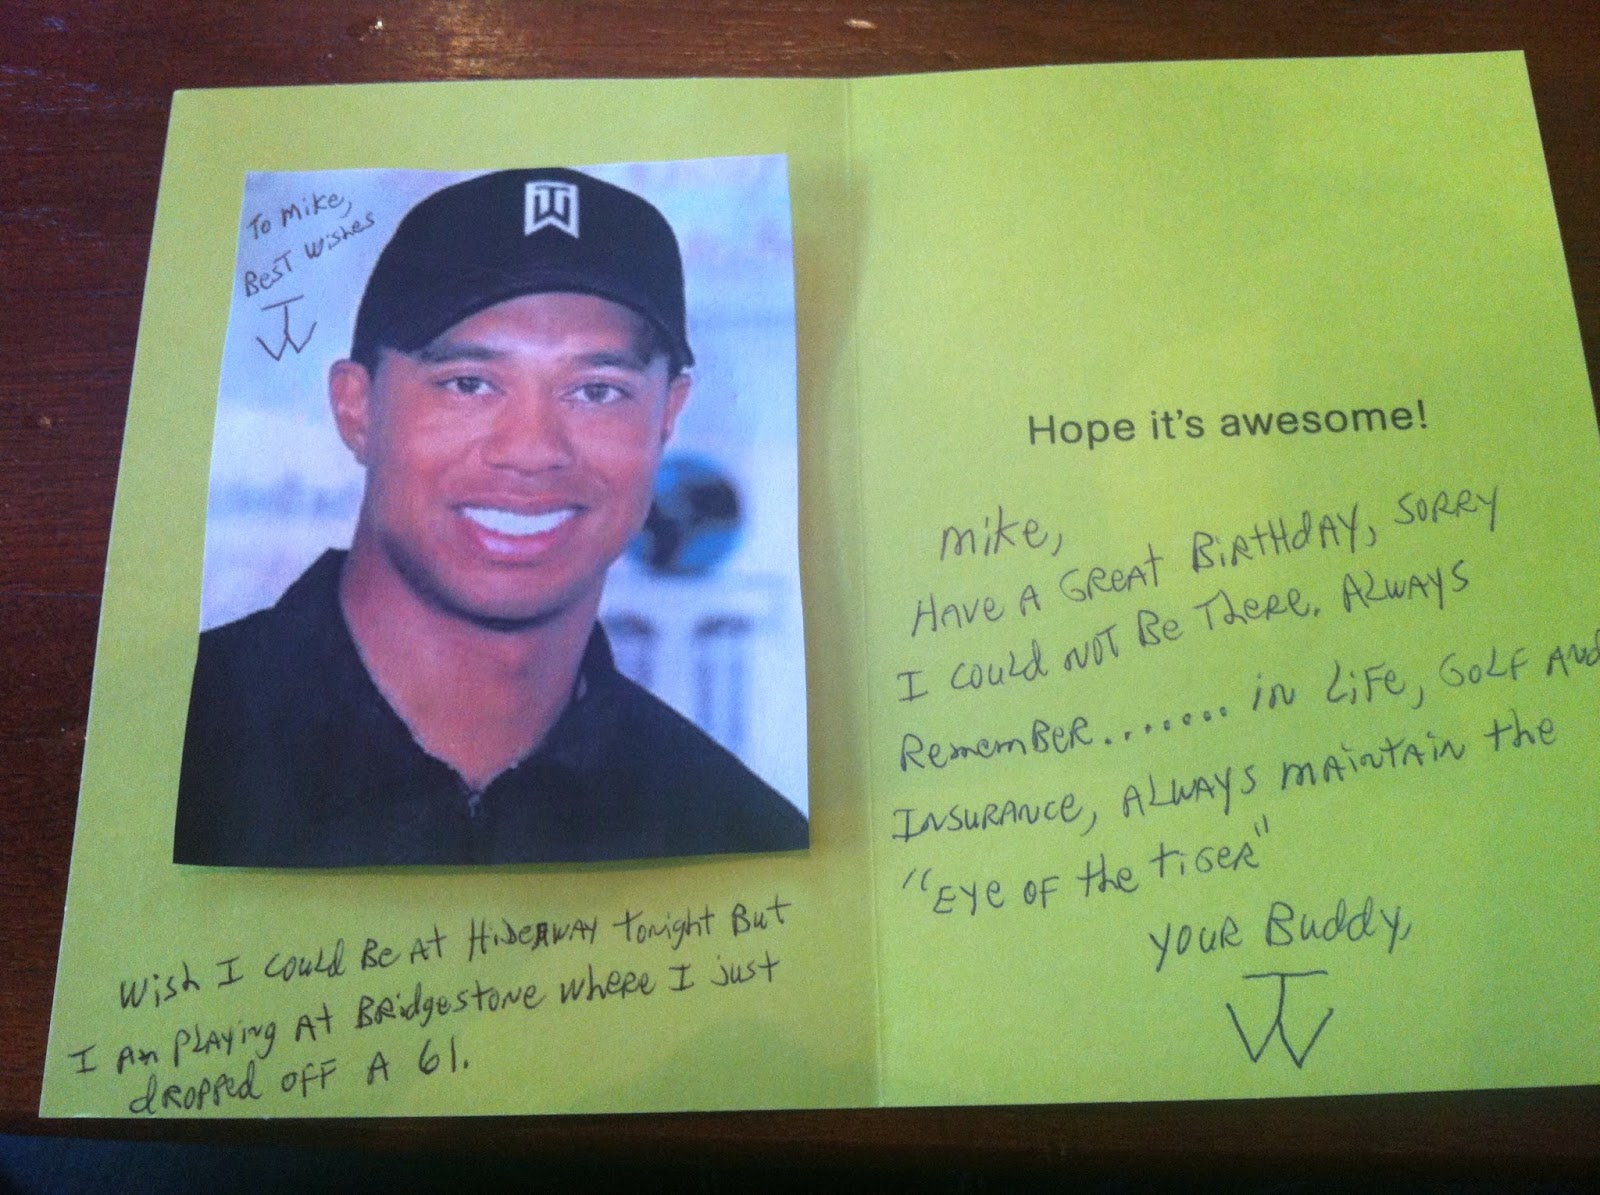 To Mike,
Best Wishes
TW
TW
Wish I could Be At Hideaway tonight But
I Am playing At Bridgestone where I just
dropped off A 61.
Hope it's awesome!
Mike,
Have A Great Birthday, Sorry
I could not Be There. Always
Remember....... in Life, Golf And
Insurance, Always maintain the
"Eye of the tiger"
your Buddy,
TW